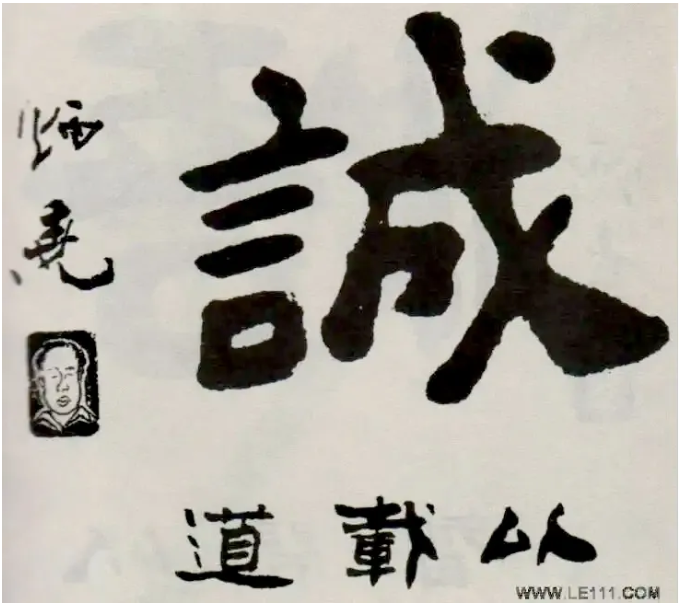 誠
以載道
炳堯
WWW.LE111.COM